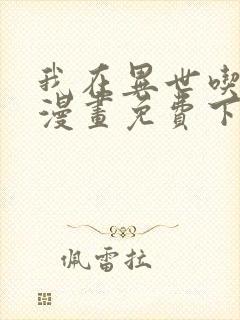 我在異世喫
漫畫免費下
佩雷拉